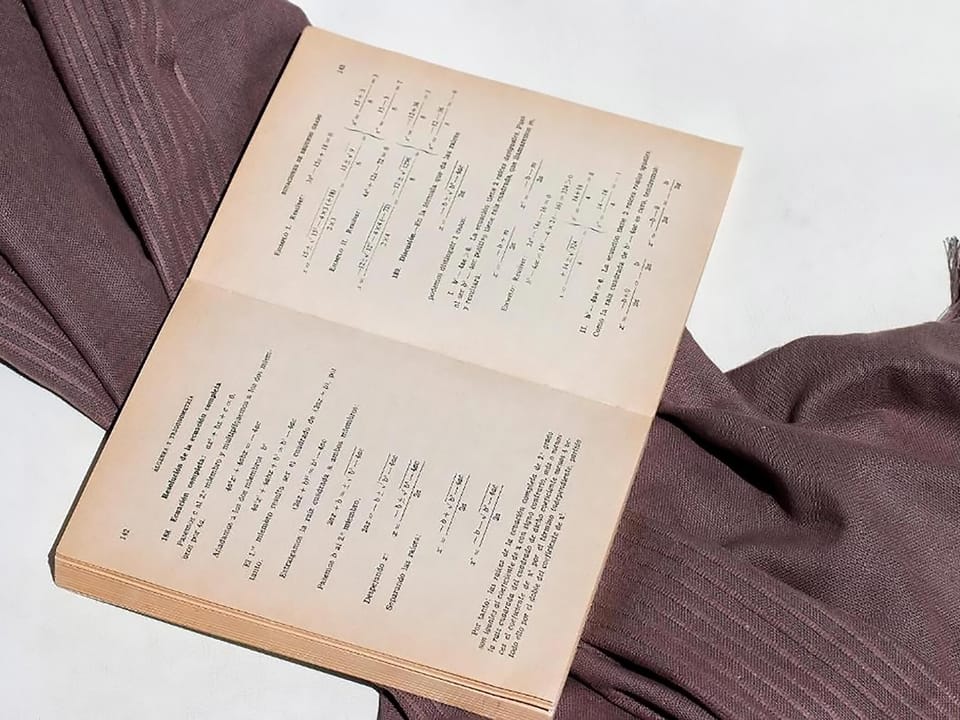 142
ALGEBRA Y TRIGONOMETRIA
Resolución de la ecuación completa
188. Ecuación completa: ax² + bx + c = 0.
Pasemos c al 2.º miembro y multipliquemos a los dos miem-
bros por 4a:
4a²x² + 4abx = — 4ac
Añadamos a los dos miembros b²
4a²x² + 4abx + b² = b² — 4ac
El 1.er miembro resulta ser el cuadrado de (2ax + b), por
tanto:
(2ax + b)² = b² — 4ac
Extraigamos la raíz cuadrada a ambos miembros:
2ax + b = ± √b² — 4ac
Pasemos b al 2.º miembro,
2ax = — b ± √b² — 4ac
Despejando x:
x = (— b ± √b² — 4ac) / 2a
Separando las raíces:
x' = (— b + √b² — 4ac) / 2a
x" = (— b — √b² — 4ac) / 2a
Por tanto: las raíces de la ecuación completa de 2.º grado
son iguales al coeficiente de x con signo contrario, más o menos
la raíz cuadrada del cuadrado de dicho coeficiente menos 4 ve-
ces el coeficiente de x² por el término independiente, partido
todo ello por el doble del coeficiente de x².
143
ECUACIONES DE SEGUNDO GRADO
EJEMPLO I. Resolver:
EJEMPLO II. Resolver: 4x² + 12x — 72 = 0
189. Discusión.—En la fórmula que da las raíces
x = (— b ± √b² — 4ac) / 2a
podemos distinguir 3 casos:
I. b² — 4ac > 0. La ecuación tiene 2 raíces desiguales, pues
al ser b² — 4ac positivo tiene raíz cuadrada, que llamaremos m,
y resultará
x' = (— b + m) / 2a x" = (— b — m) / 2a
EJEMPLO: Resolver:
II. b² — 4ac = 0. La ecuación tiene 2 raíces reales iguales.
Como la raíz cuadrada de b² — 4ac es cero, tendremos: